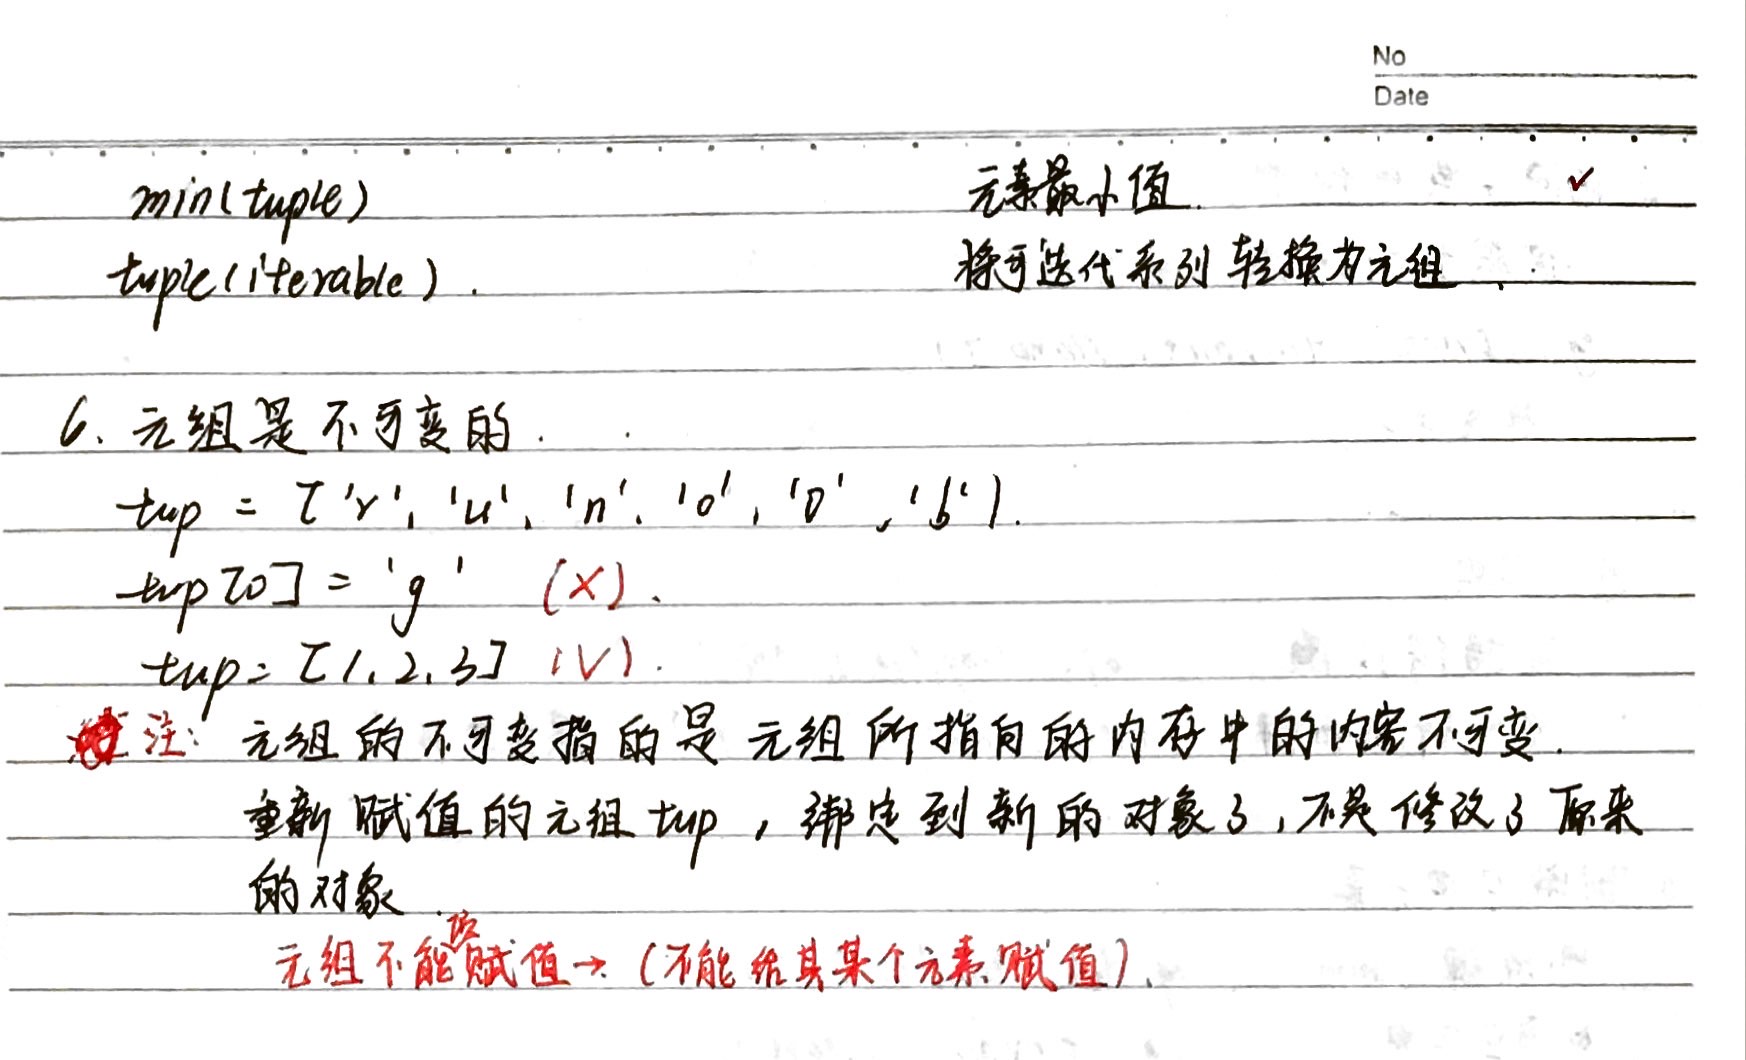 No
Date
min(tuple) 元素最小值. ✓
tuple(iterable). 将可迭代系列转换为元组.
6. 元组是不可变的.
tup = ['r', 'u', 'n', 'o', 'o', 'b').
tup[0] = 'g' (×).
tup = [1, 2, 3] (√).
注: 元组的不可变指的是元组所指向的内存中的内容不可变.
重新赋值的元组tup, 绑定到新的对象了, 不是修改了原来
的对象.
元组不能项赋值→(不能给其某个元素赋值).